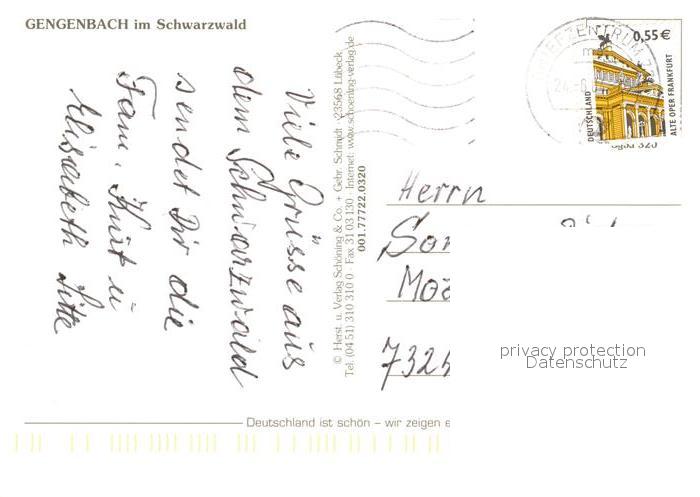 GENGENBACH im Schwarzwald
Viele Grüsse aus
dem Schwarzwald
sendet Dir die
Fam. Kurt u
Elisabeth Litte
© Herst. u. Verlag Schöning & Co. + Gebr. Schmidt · 23568 Lübeck
Tel. (04 51) 310 310 0 · Fax 31 03 130 · Internet: www.schoening-verlag.de
001.77722.0320
BRIEFZENTRUM
0,55€
DEUTSCHLAND
ALTE OPER FRANKFURT
Herrn
Son
Moz
732
privacy protection
Datenschutz
Deutschland ist schön – wir zeigen e